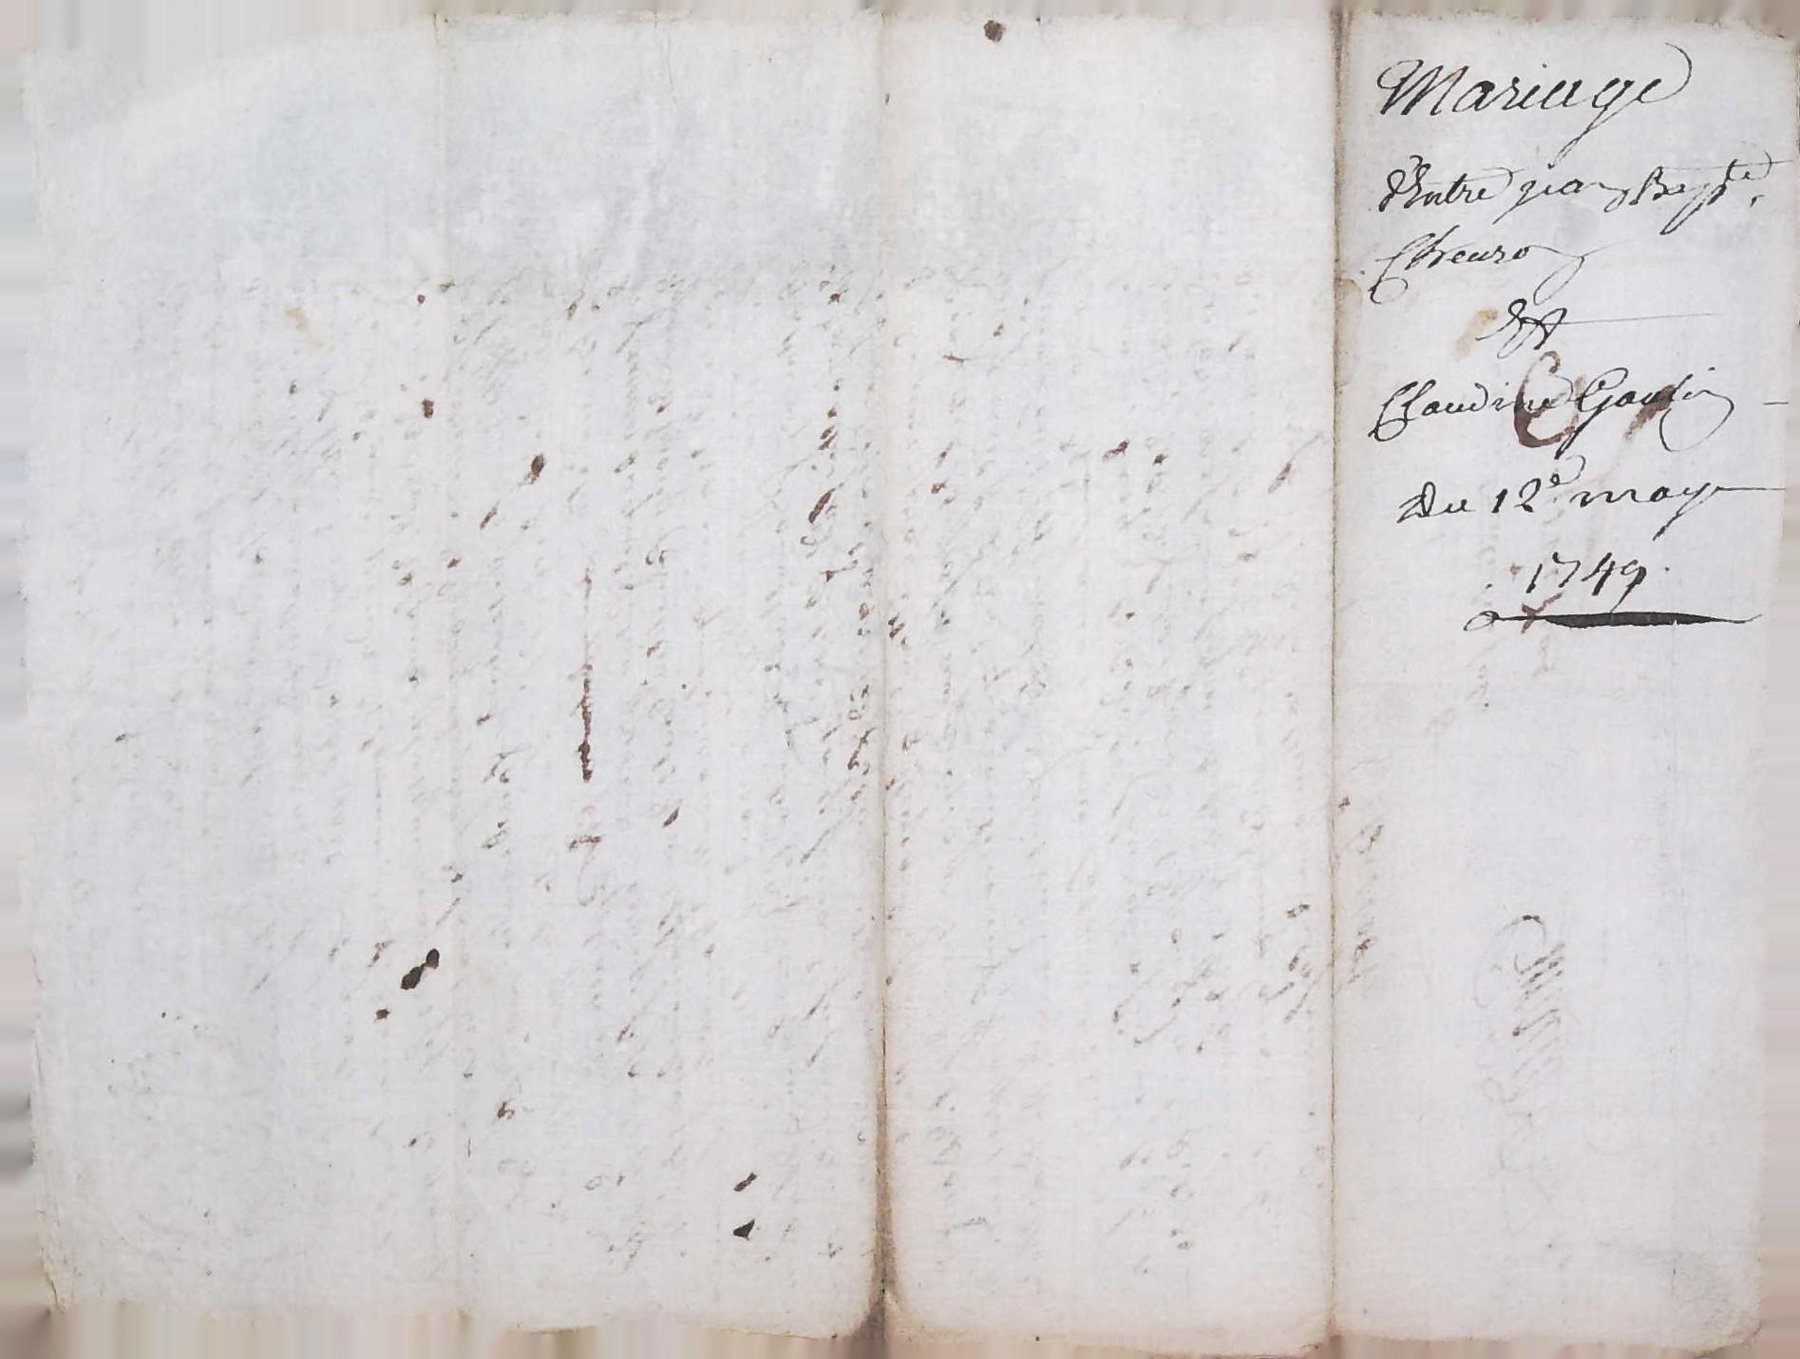 Mariage
D'Entre jean Bapte.
Cheuro
Et
Claudine Gaudin
Du 12e may
1749.